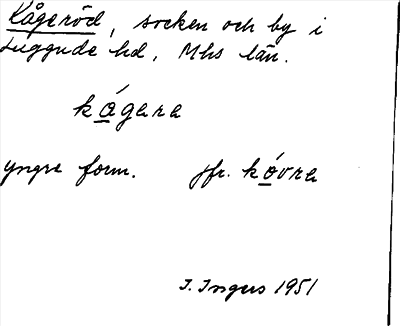 Kågeröd, socken och by i
Luggude hd, Mhs län.
kógara
yngre form. jfr. kóvra
I. Ingers 1951